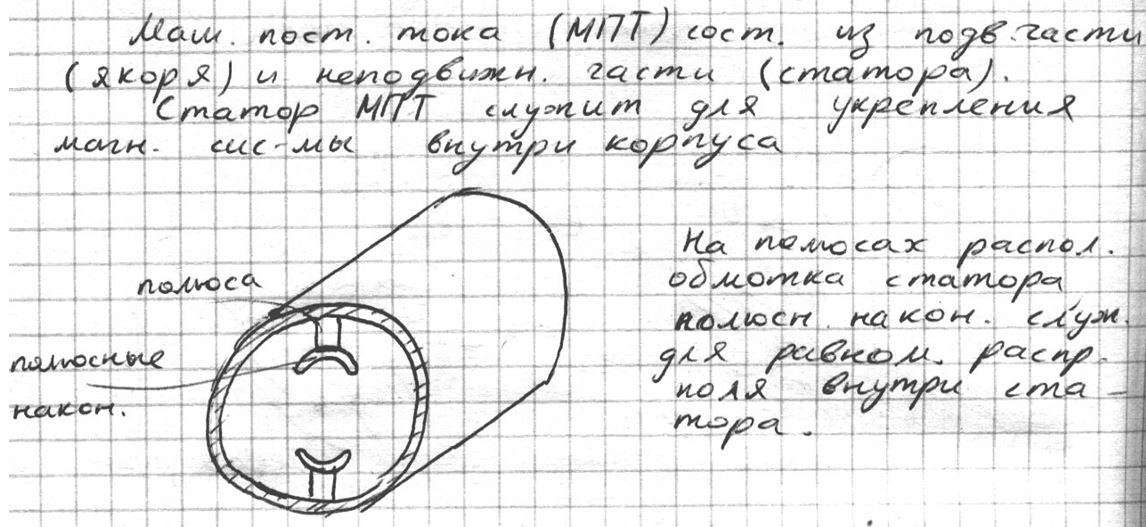 Маш. пост. тока (МПТ) сост. из подв. части
(якоря) и неподвижн. части (статора).
Статор МПТ служит для укрепления
магн. сис-мы внутри корпуса
полюса
полюсные
након.
На полюсах распол.
обмотка статора
полюсн. након. служ.
для равном. распр.
поля внутри ста-
тора.